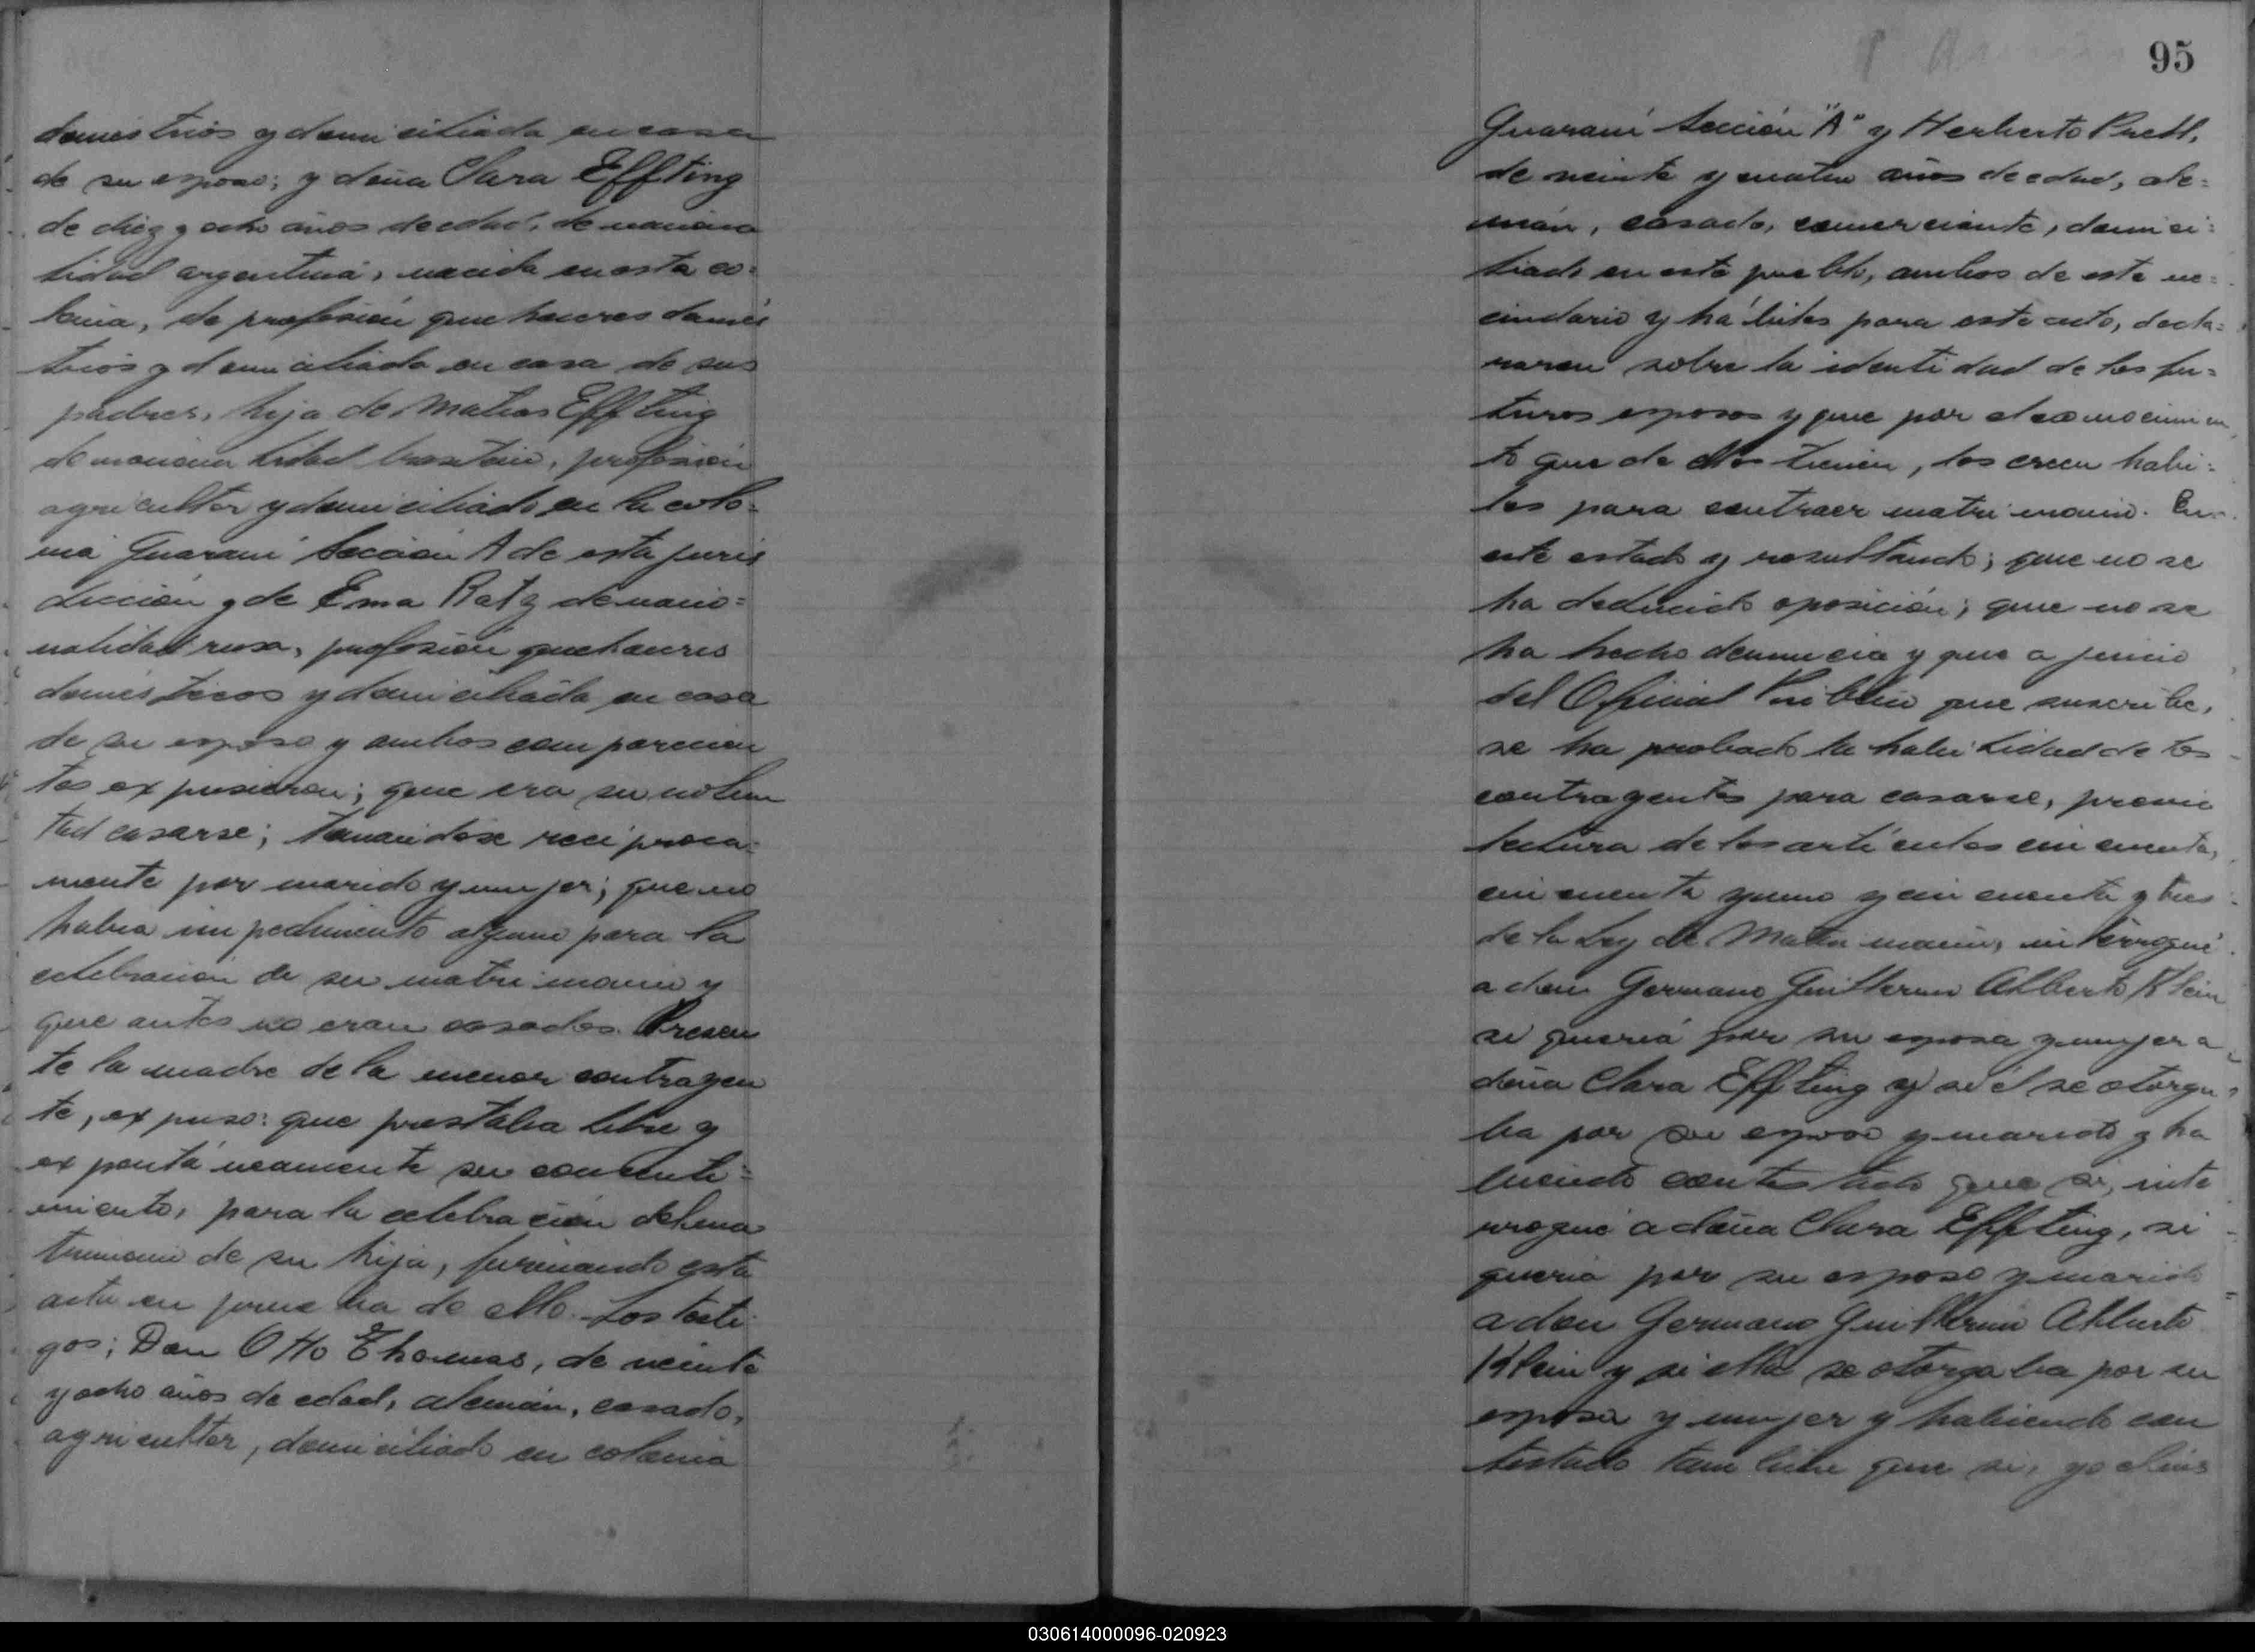 domésticos y domiciliada en casa
de su esposo; y doña Clara Effting
de diez y ocho años de edad, de naciona
lidad argentina, nacida en esta co=
lonia, de profesión quehaceres domés
ticos y domiciliada en casa de sus
padres, hija de Matias Effting
de nacionalidad brasilera, profesión
agricultor y domiciliado en la colo=
nia Guaraní Sección A de esta juris
dicción y de Ema Ratz de nacio=
nalidad rusa, profesión quehaceres
domésticos y domiciliada en casa
de su esposo y ambos comparecien
tes expusieron; que era su volun
tad casarse; tomandose reciproca=
mente por marido y mujer; que no
habia impedimento alguno para la
celebración de su matrimonio y
que antes no eran casados. Presen
te la madre de la menor contrayen
te, expuso: que prestaba libre y
expontáneamente su consenti=
miento, para la celebración del ma
trimonio de su hija, firmando esta
acta en prueba de ello. Los testi
gos; Don Otto Thomas, de veinte
y ocho años de edad, alemán, casado,
agricultor, domiciliado en colonia
95
Guaraní Sección "A" y Herberto
de veinte y cuatro años de edad, ale=
mán, casado, comerciante, domici=
liado en este pueblo, ambos de este ve=
cindario y hábiles para este acto, decla=
raron sobre la identidad de los fu=
turos esposos y que por el conocimien
to que de ellos tienen, los creen habi=
les para contraer matrimonio. En
este estado y resultando; que no se
ha deducido oposición; que no se
ha hecho denuncia y que a juicio
del Oficial Público que suscribe,
se ha probado la habilidad de los
contrayentes para casarse, previa
lectura de los artículos cincuenta,
cincuenta y uno y cincuenta y tres
de la Ley de Matrimonio, interrogué
a don Germano Guillermo Alberto Klein
si quería por su esposa y mujer a
doña Clara Effting y si él se otorga
ba por su esposo y marido y ha
biendo contestado que si, inte
rrogué a doña Clara Effting, si
quería por su esposo y marido
a don Germano Guillermo Alberto
Klein y si ella se otorgaba por su
esposa y mujer y habiendo con
testado tambien que si, yo
030614000096-020923